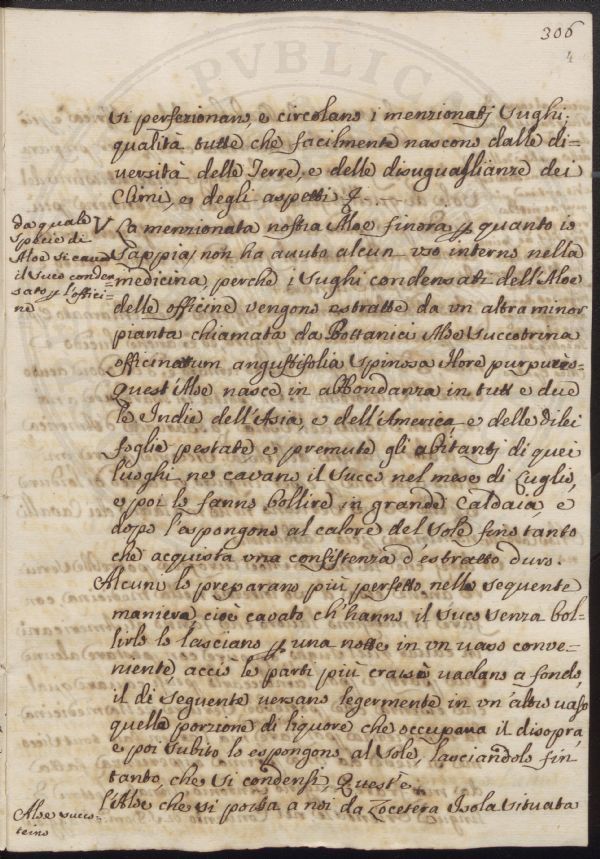 306
4
si perfezionano, e circolano i menzionati sughi;
qualità tutte che facilmente nascono dalle di=
uersità delle Terre, e delle disuguaglianze dei
Climi, e degli aspetti
da quale
spetie di
Aloe si caua
il suco conden=
sato p l'offici=
ne
La menzionata nostra Aloe finora, p quanto io
sappia, non ha auuto alcun vso interno nella
medicina, perche i sughi condensati dell'Aloe
delle officine vengono estratte da vn altra minor
pianta chiamata da Bottanici Aloe Succotrina
officinarum angustifolia spinosa flore purpureo=
quest'Aloe nasce in abbondanza in tutt e due
le Indie dell'Asia, e dell'America, e delle di lei
foglie pestate e premute gli abitanti di quei
luoghi ne cauano il succo nel mese di Luglio,
e poi lo fanno bollire in grande Caldaia, e
dopo l'espongono al calore del Sole fino tanto
che acquista vna consistenza d'estratto duro.
Alcuni lo preparano più perfetto nella seguente
maniera, cioè cauato ch'hanno il suco senza bol=
lirlo lo lasciano p una notte in vn uaso conue=
niente, acciò le parti più crasse uadano a fondo,
il di seguente versano legermente in vn'altro uaso
quella porzione di liquore che occupaua il disopra,
e poi subito lo espongono al Sole, lasciandolo fin
tanto, che si condensi, Quest'e
l'Aloe che si porta a noi da Zocotera Isola situata
Aloe succo=
trino